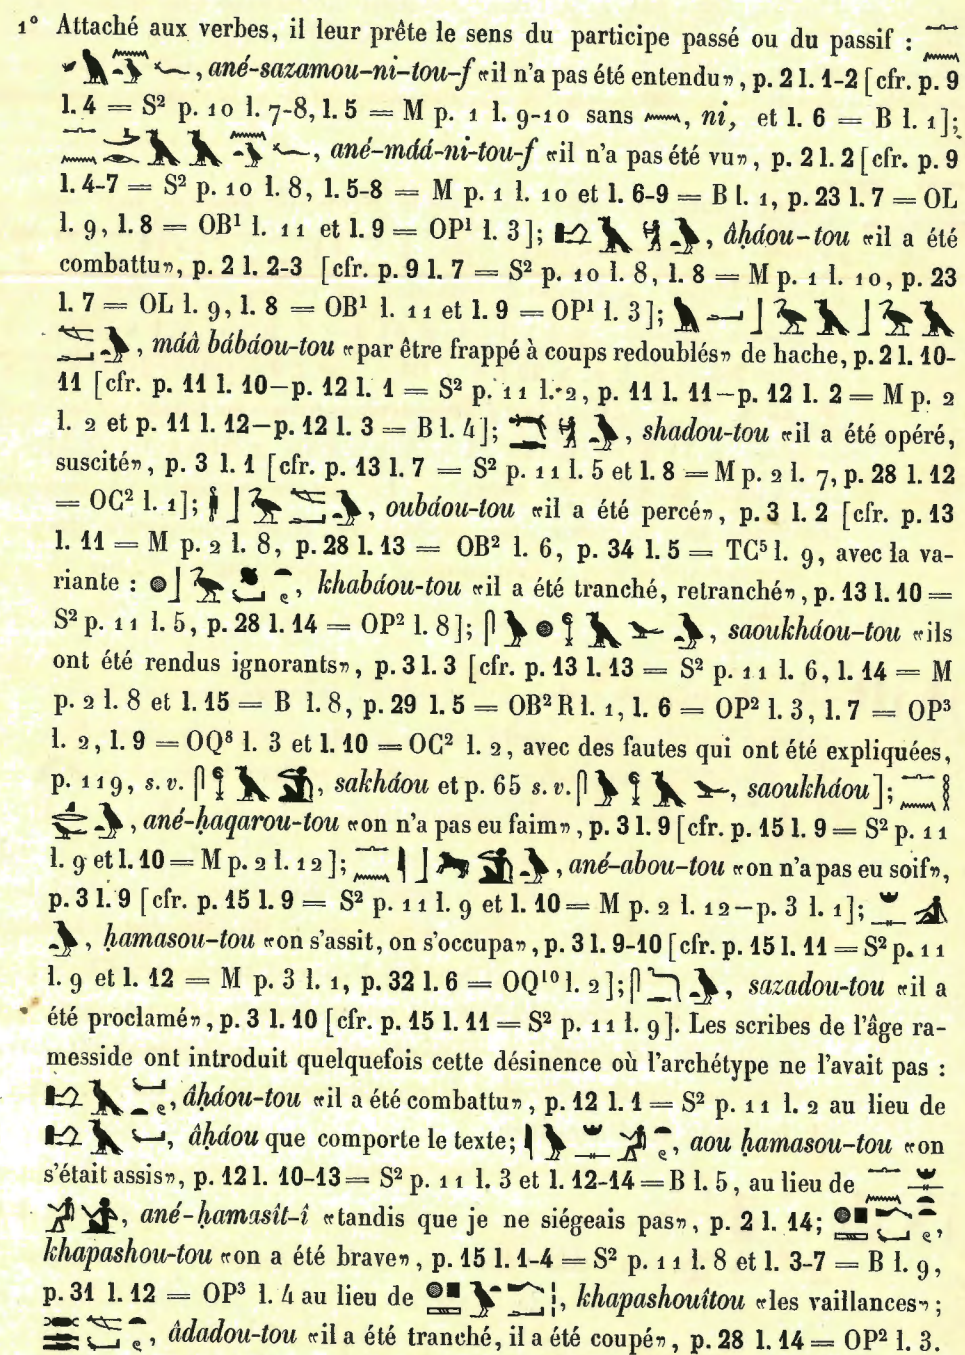 1° Attaché aux verbes, il leur prête le sens du participe passé ou du passif :
, ané-sazamou-ni-tou-f «il n'a pas été entendu», p. 2 l. 1-2 [cfr. p. 9
l. 4 = S² p. 10 l. 7-8, l. 5 = M p. 1 l. 9-10 sans 𓈖, ni, et l. 6 = B l. 1];
, ané-máá-ni-tou-f «il n'a pas été vu», p. 2 l. 2 [cfr. p. 9
l. 4-7 = S² p. 10 l. 8, l. 5-8 = M p. 1 l. 10 et l. 6-9 = B l. 1, p. 23 l. 7 = OL
l. 9, l. 8 = OB¹ l. 11 et l. 9 = OP¹ l. 3]; , âḥáou-tou «il a été
combattu», p. 2 l. 2-3 [cfr. p. 9 l. 7 = S² p. 10 l. 8, l. 8 = M p. 1 l. 10, p. 23
l. 7 = OL l. 9, l. 8 = OB¹ l. 11 et l. 9 = OP¹ l. 3];
, máâ bábáou-tou «par être frappé à coups redoublés» de hache, p. 2 l. 10-
11 [cfr. p. 11 l. 10–p. 12 l. 1 = S² p. 11 l. 2, p. 11 l. 11–p. 12 l. 2 = M p. 2
l. 2 et p. 11 l. 12–p. 12 l. 3 = B l. 4]; , shadou-tou «il a été opéré,
suscité», p. 3 l. 1 [cfr. p. 13 l. 7 = S² p. 11 l. 5 et l. 8 = M p. 2 l. 7, p. 28 l. 12
= OC² l. 1]; , oubáou-tou «il a été percé», p. 3 l. 2 [cfr. p. 13
l. 11 = M p. 2 l. 8, p. 28 l. 13 = OB² l. 6, p. 34 l. 5 = TC⁵ l. 9, avec la va-
riante : , khabáou-tou «il a été tranché, retranché», p. 13 l. 10 =
S² p. 11 l. 5, p. 28 l. 14 = OP² l. 8]; , saoukháou-tou «ils
ont été rendus ignorants», p. 3 l. 3 [cfr. p. 13 l. 13 = S² p. 11 l. 6, l. 14 = M
p. 2 l. 8 et l. 15 = B l. 8, p. 29 l. 5 = OB² R l. 1, l. 6 = OP² l. 3, l. 7 = OP³
l. 2, l. 9 = OQ⁸ l. 3 et l. 10 = OC² l. 2, avec des fautes qui ont été expliquées,
p. 119, s. v. , sakháou et p. 65 s. v. , saoukháou];
, ané-ḥaqarou-tou «on n'a pas eu faim», p. 3 l. 9 [cfr. p. 15 l. 9 = S² p. 11
l. 9 et l. 10 = M p. 2 l. 12]; , ané-abou-tou «on n'a pas eu soif»,
p. 3 l. 9 [cfr. p. 15 l. 9 = S² p. 11 l. 9 et l. 10 = M p. 2 l. 12–p. 3 l. 1];
, ḥamasou-tou «on s'assit, on s'occupa», p. 3 l. 9-10 [cfr. p. 15 l. 11 = S² p. 11
l. 9 et l. 12 = M p. 3 l. 1, p. 32 l. 6 = OQ¹⁰ l. 2]; , sazadou-tou «il a
été proclamé», p. 3 l. 10 [cfr. p. 15 l. 11 = S² p. 11 l. 9]. Les scribes de l'âge ra-
messide ont introduit quelquefois cette désinence où l'archétype ne l'avait pas :
, âḥáou-tou «il a été combattu», p. 12 l. 1 = S² p. 11 l. 2 au lieu de
, âḥáou que comporte le texte; , aou ḥamasou-tou «on
s'était assis», p. 12 l. 10-13 = S² p. 11 l. 3 et l. 12-14 = B l. 5, au lieu de
, ané-ḥamasît-î «tandis que je ne siégeais pas», p. 2 l. 14; ,
khapashou-tou «on a été brave», p. 15 l. 1-4 = S² p. 11 l. 8 et l. 3-7 = B l. 9,
p. 31 l. 12 = OP³ l. 4 au lieu de , khapashouîtou «les vaillances»;
, âdadou-tou «il a été tranché, il a été coupé», p. 28 l. 14 = OP² l. 3.